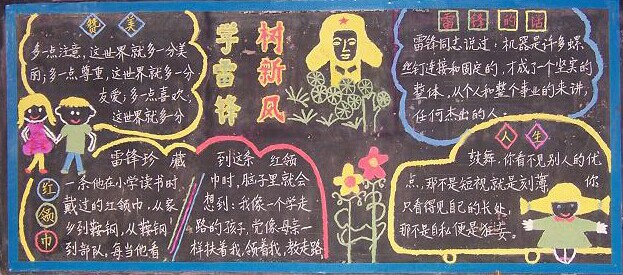 赞美
多点注意,这世界就多一分美
丽;多点尊重,这世界就多一分
友爱;多点喜欢,
这世界就多一分
学雷锋
树新风
雷锋的话
雷锋同志说过:机器是许多螺
丝钉连接和固定的,才成了一个坚实的
整体,从个人和整个事业的来讲,
任何杰出的人
红领巾
雷锋珍藏
一条他在小学读书时
戴过的红领巾,从家
乡到鞍钢,从鞍钢
到部队,每当他看
到这条红领
巾时,脑子里就会
想到:我像一个学走
路的孩子,党像母亲一
样扶着我,领着我,教走路
人生
鼓舞,你看不见别人的优
点,那不是短视就是刻薄,你
只看得见自己的长处,
那不是自私便是狂妄。